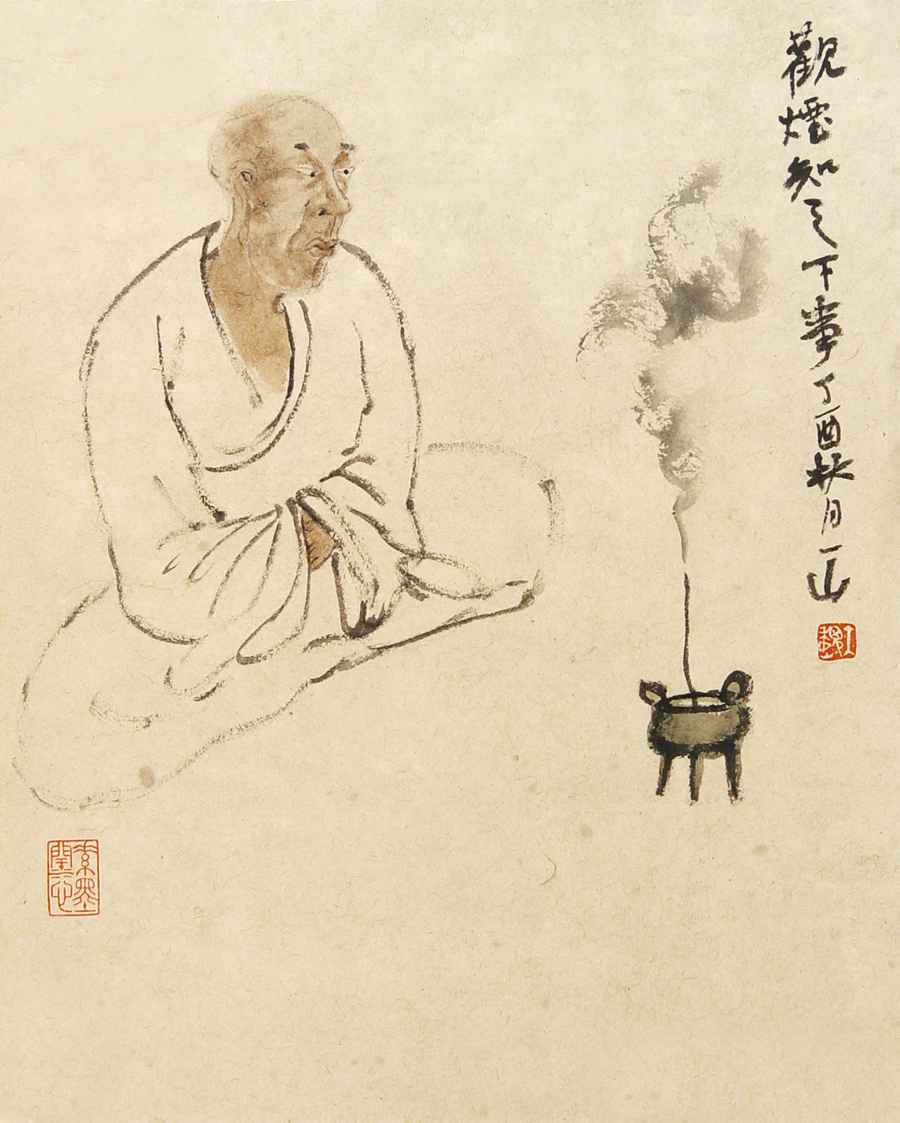 觀煙知天下事丁酉秋月一山